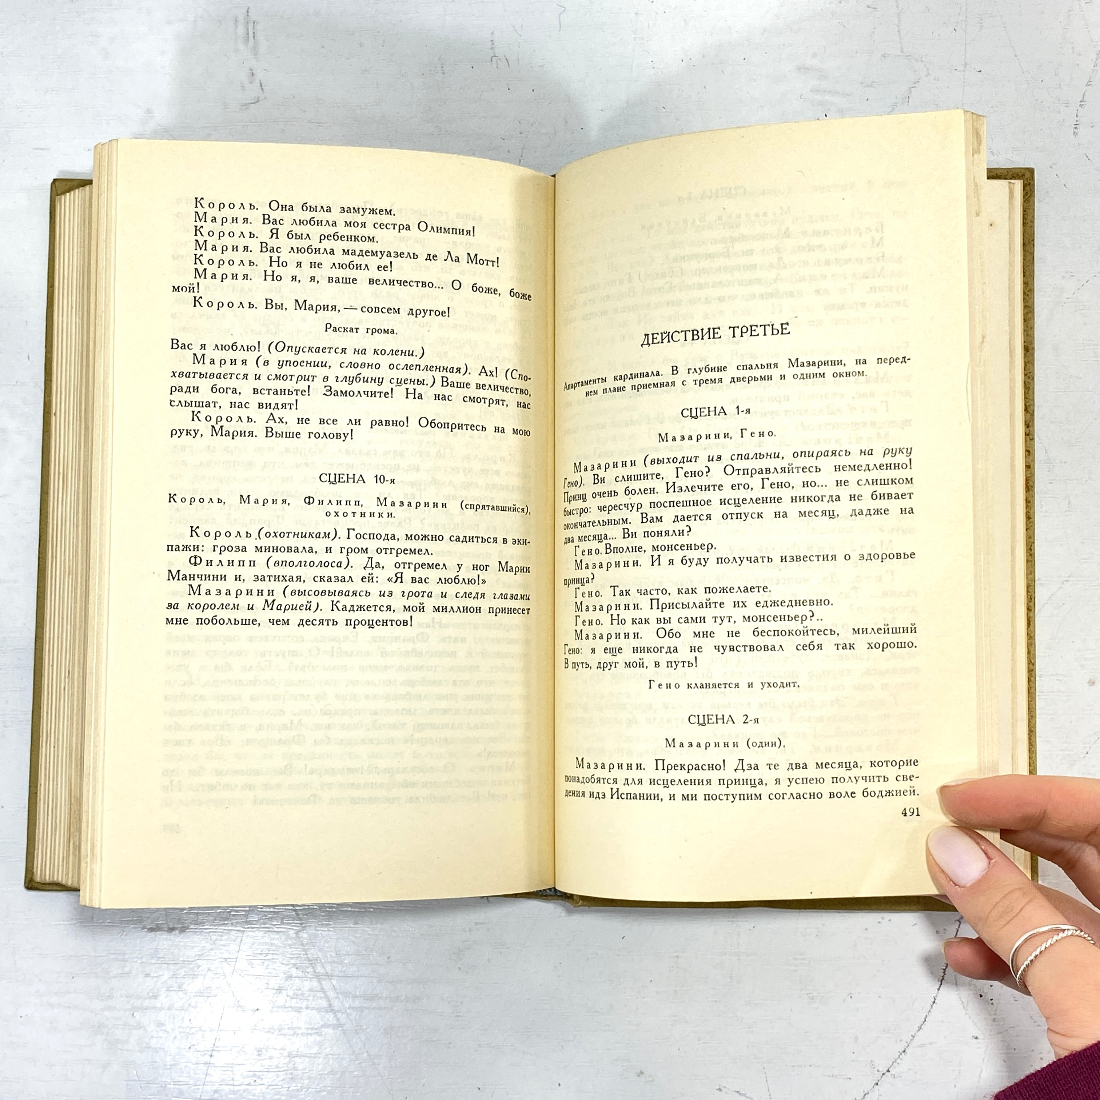 Король. Она была замужем.
Мария. Вас любила моя сестра Олимпия!
Король. Я был ребенком.
Мария. Вас любила мадемуазель де Ла Мотт!
Король. Но я не любил ее!
Мария. Но я, я, ваше величество... О боже, боже
мой!
Король. Вы, Мария, — совсем другое!
Раскат грома.
Вас я люблю! (Опускается на колени.)
Мария (в упоении, словно ослепленная). Ах! (Спо-
хватывается и смотрит в глубину сцены.) Ваше величество,
ради бога, встаньте! Замолчите! На нас смотрят, нас
слышат, нас видят!
Король. Ах, не все ли равно! Обопритесь на мою
руку, Мария. Выше голову!
СЦЕНА 10-я
Король, Мария, Филипп, Мазарини (спрятавшийся),
охотники.
Король (охотникам). Господа, можно садиться в эки-
пажи: гроза миновала, и гром отгремел.
Филипп (вполголоса). Да, отгремел у ног Марии
Манчини и, затихая, сказал ей: «Я вас люблю!»
Мазарини (высовываясь из грота и следя глазами
за королем и Марией). Каджется, мой миллион принесет
мне побольше, чем десять процентов!
ДЕЙСТВИЕ ТРЕТЬЕ
Апартаменты кардинала. В глубине спальня Мазарини, на перед-
нем плане приемная с тремя дверьми и одним окном.
СЦЕНА 1-я
Мазарини, Гено.
Мазарини (выходит из спальни, опираясь на руку
Гено). Ви слишите, Гено? Отправляйтесь немедленно!
Принц очень болен. Излечите его, Гено, но... не слишком
быстро: чересчур поспешное исцеление никогда не бивает
окончательным. Вам дается отпуск на месяц, дадже на
два месяца... Ви поняли?
Гено. Вполне, монсеньер.
Мазарини. И я буду получать известия о здоровье
принца?
Гено. Так часто, как пожелаете.
Мазарини. Присылайте их еджедневно.
Гено. Но как вы сами тут, монсеньер?..
Мазарини. Обо мне не беспокойтесь, милейший
Гено: я еще никогда не чувствовал себя так хорошо.
В путь, друг мой, в путь!
Гено кланяется и уходит.
СЦЕНА 2-я
Мазарини (один).
Мазарини. Прекрасно! Дза те два месяца, которие
понадобятся для исцеления принца, я успею получить све-
дения идз Испании, и ми поступим согласно воле боджией.
491